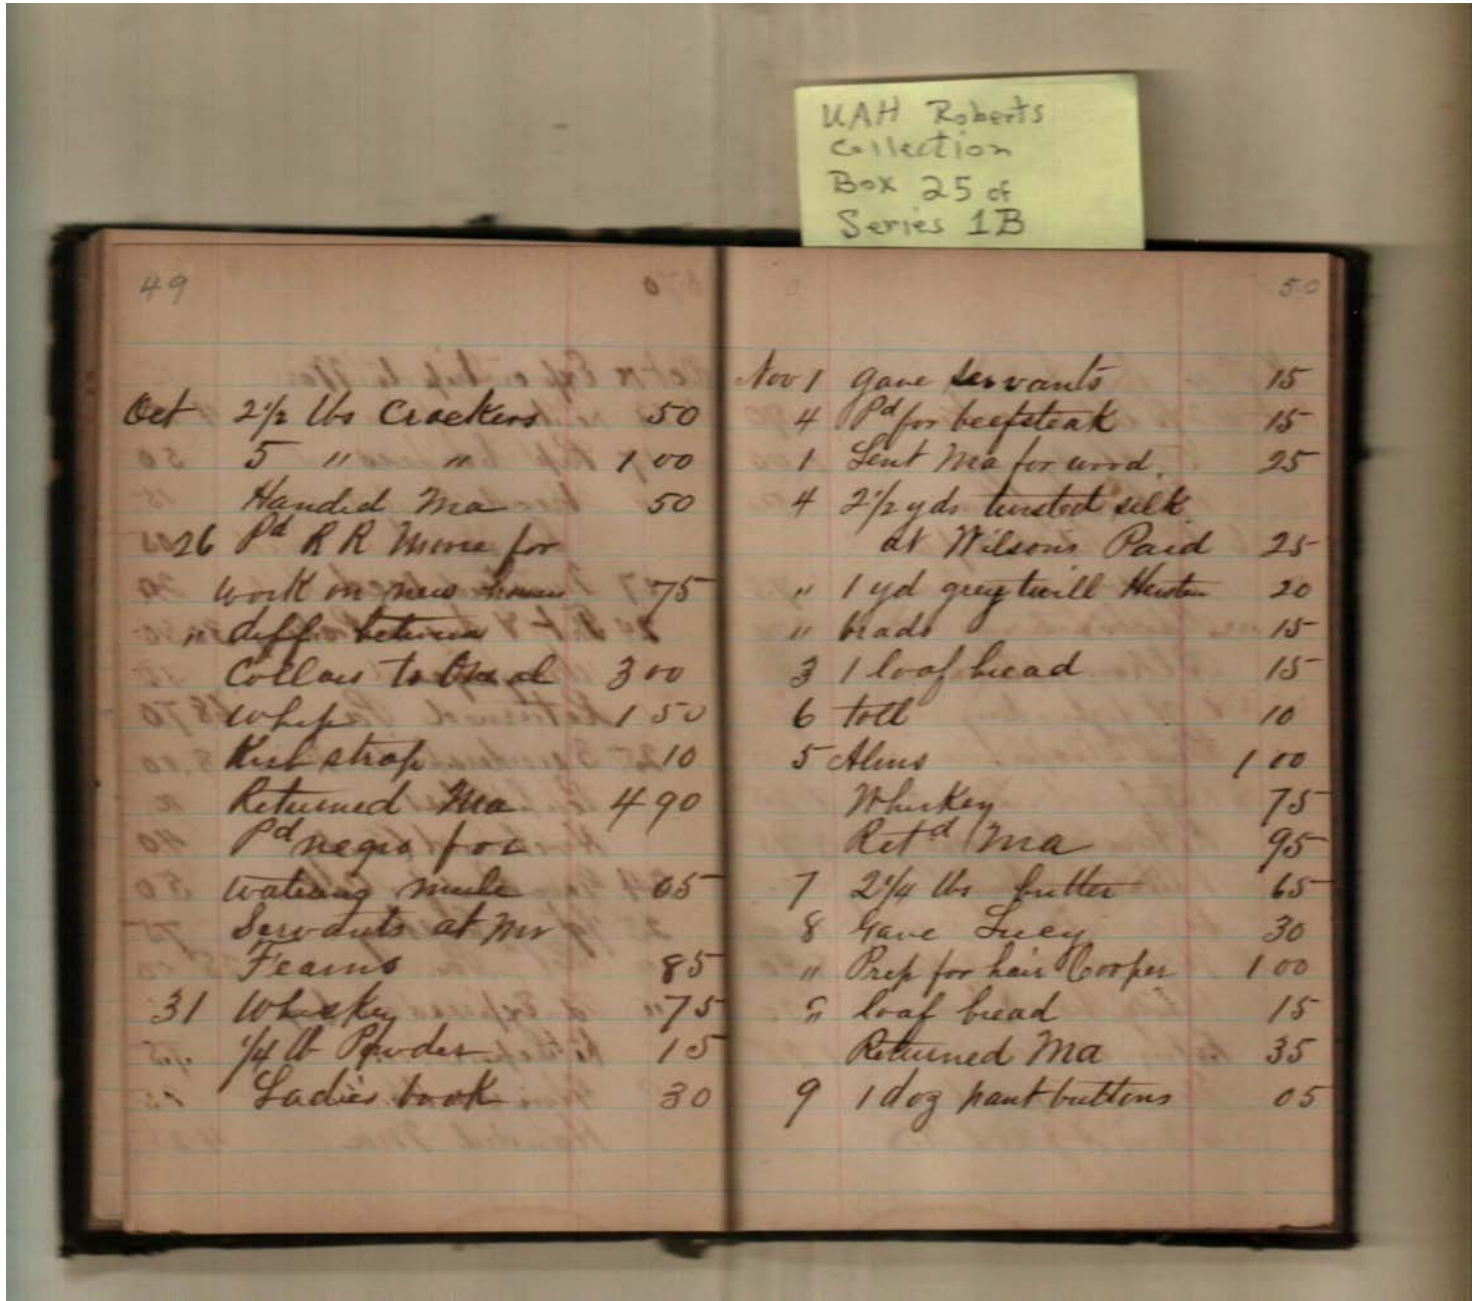 UAH Roberts
Collection
Box 25 of
Series 1B
49
Oct 2 1/2 lbs Crackers 50
5 " " 1 00
Handed Ma 50
26 Pd R R Moore for
work on new house 75
" diff between
Collars to 3 00
Whip 1 50
strap 10
Returned Ma 4 90
Pd negro for
watering mule 05
Servants at Mr
Fearns 85
31 Whiskey 75
1/4 lb Powder 15
Ladie's book 30
50
Nov 1 gave servants 15
4 Pd for beefsteak 15
1 Sent Ma for wood. 25
4 2 1/2 yds twisted silk
at Wilsons Paid 25
" 1 yd grey twill 20
" brads 15
3 1 loaf bread 15
6 toll 10
5 Alms 1 00
Whiskey 75
Retd Ma 95
7 2 1/4 lbs butter 65
8 Gave Lucy 30
" Prep for hair Cooper 1 00
" loaf bread 15
Returned Ma 35
9 1 doz pant buttons 05